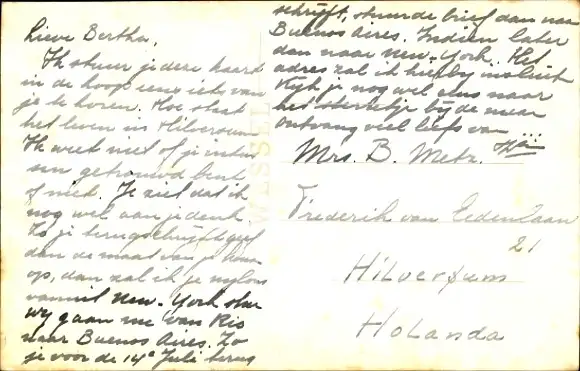 Lieve Bertha,
Ik stuur je deze kaart
in de hoop eens iets van
je te horen. Hoe staat
het leven in Hilversum
Ik weet niet of je intus
sen getrouwd bent
of niet. Je ziet dat ik
nog wel aan je denk.
Zo je terugschrijft geef
dan de maat van je
op, dan zal ik je nylons
vanuit New-York stu
wy gaan nu van Rio
naar Buenos Aires. Zo
je voor de 14e Juli terug
schrijft, stuur de brief dan naar
Buenos Aires. Indien later
dan naar New-York. Het
adres zal ik hierby insluit
Kijk je nog wel eens naar
het sterretje bij de maan
ontvang veel liefs van ...
Mrs. B. Metz.
Frederik van Eedenlaan
21
Hilversum
Holanda
WESSEL